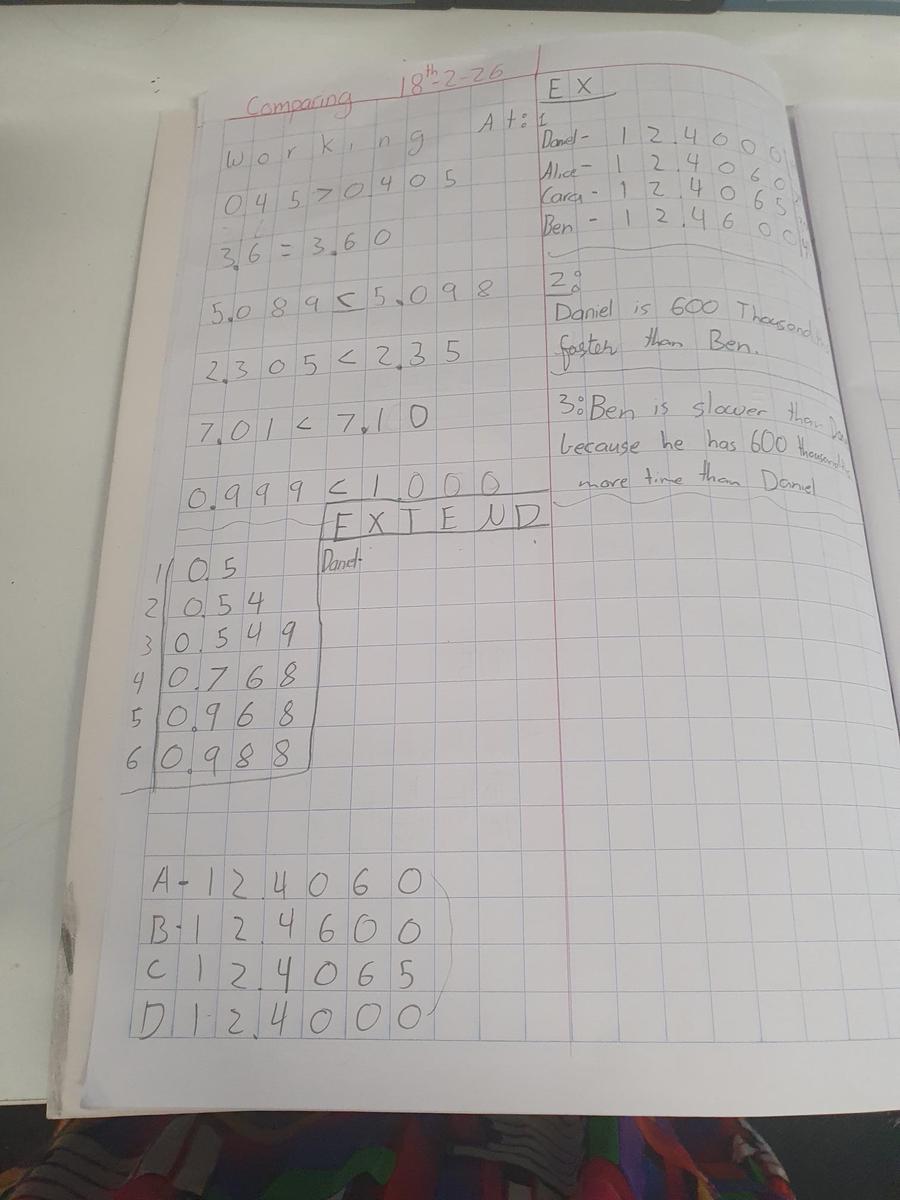 Comparing 18th-2-26
Working At:
045 > 0405
3.6 = 3.60
5.089 < 5.098
2.305 < 2.35
7.01 < 7.10
0.999 < 1.000
1 0.5
2 0.54
3 0.549
4 0.768
5 0.968
6 0.988
EXTEND
Danel-
A-12.4060
B-12.4600
C 12.4065
D 12.4000
EX
1
Danel- 12.4000
Alice- 12.4060
Cara- 12.4065
Ben - 12.4600
2:
Daniel is 600
faster than Ben.
3: Ben is slower than
because he has 600
more time than Daniel